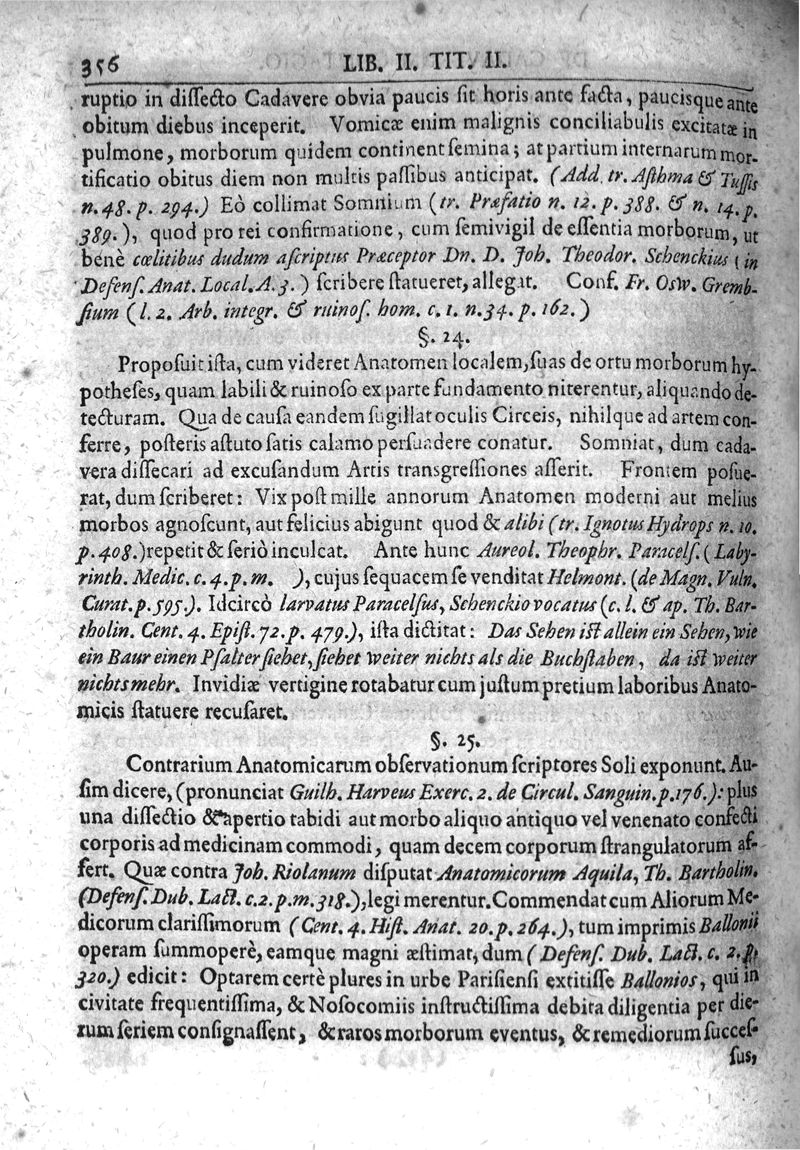 356 LIB. II. TIT. II.
ruptio in diſſecto Cadavere obvia paucis ſit horis ante facta, paucisque ante
obitum diebus inceperit. Vomicæ enim malignis conciliabulis excitatæ in
pulmone, morborum quidem continent ſemina; at partium internarum mor-
tificatio obitus diem non multis paſſibus anticipat. (Add. tr. Aſthma & Tuſſis
n. 48. p. 294.) Eò collimat Somnium (tr. Præfatio n. 12. p. 388. & n. 14. p.
389.), quod pro rei confirmatione, cum ſemivigil de eſſentia morborum, ut
benè cœlitibus dudum aſcriptus Præceptor Dn. D. Joh. Theodor. Schenckius (in
Defenſ. Anat. Local. A. 3.) ſcribere ſtatueret, allegat. Conf. Fr. Osw. Gremb-
ſium (l. 2. Arb. integr. & ruinoſ. hom. c. 1. n. 34. p. 162.)
§. 24.
Propoſuit iſta, cum videret Anatomen localem, ſuas de ortu morborum hy-
potheſes, quam labili & ruinoſo ex parte fundamento niterentur, aliquando de-
tecturam. Qua de cauſa eandem ſugillat oculis Circeis, nihilque ad artem con-
ferre, poſteris aſtuto ſatis calamo perſuadere conatur. Somniat, dum cada-
vera diſſecari ad excuſandum Artis transgreſſiones aſſerit. Frontem poſue-
rat, dum ſcriberet: Vix poſt mille annorum Anatomen moderni aut melius
morbos agnoſcunt, aut felicius abigunt quod & alibi (tr. Ignotus Hydrops n. 10.
p. 408.) repetit & ſeriò inculcat. Ante hunc Aureol. Theophr. Paracelſ. (Laby-
rinth. Medic. c. 4. p. m. ), cujus ſequacem ſe venditat Helmont. (de Magn. Vuln.
Curat. p. 595.). Idcircò larvatus Paracelſus, Schenckio vocatus (c. l. & ap. Th. Bar-
tholin. Cent. 4. Epiſt. 72. p. 479.), iſta dictitat: Das Sehen iſt allein ein Sehen, wie
ein Baur einen Pſalter ſiehet, ſiehet weiter nichts als die Buchſtaben, da iſt weiter
nichts mehr. Invidiæ vertigine rotabatur cum juſtum pretium laboribus Anato-
micis ſtatuere recuſaret.
§. 25.
Contrarium Anatomicarum obſervationum ſcriptores Soli exponunt. Au-
ſim dicere, (pronunciat Guilh. Harveus Exerc. 2. de Circul. Sanguin. p. 176.): plus
una diſſectio & apertio tabidi aut morbo aliquo antiquo vel venenato confecti
corporis ad medicinam commodi, quam decem corporum ſtrangulatorum af-
fert. Quæ contra Joh. Riolanum diſputat Anatomicorum Aquila, Th. Bartholin.
(Defenſ. Dub. Lact. c. 2. p. m. 318.), legi merentur. Commendat cum Aliorum Me-
dicorum clariſſimorum (Cent. 4. Hiſt. Anat. 20. p. 264.), tum imprimis Ballonii
operam ſummoperè, eamque magni æſtimat, dum (Defenſ. Dub. Lact. c. 2. p.
320.) edicit: Optarem certè plures in urbe Pariſienſi extitiſſe Ballonios, qui in
civitate frequentiſſima, & Noſocomiis inſtructiſſima debita diligentia per die-
rum ſeriem conſignaſſent, & raros morborum eventus, & remediorum ſucceſ-
ſus,